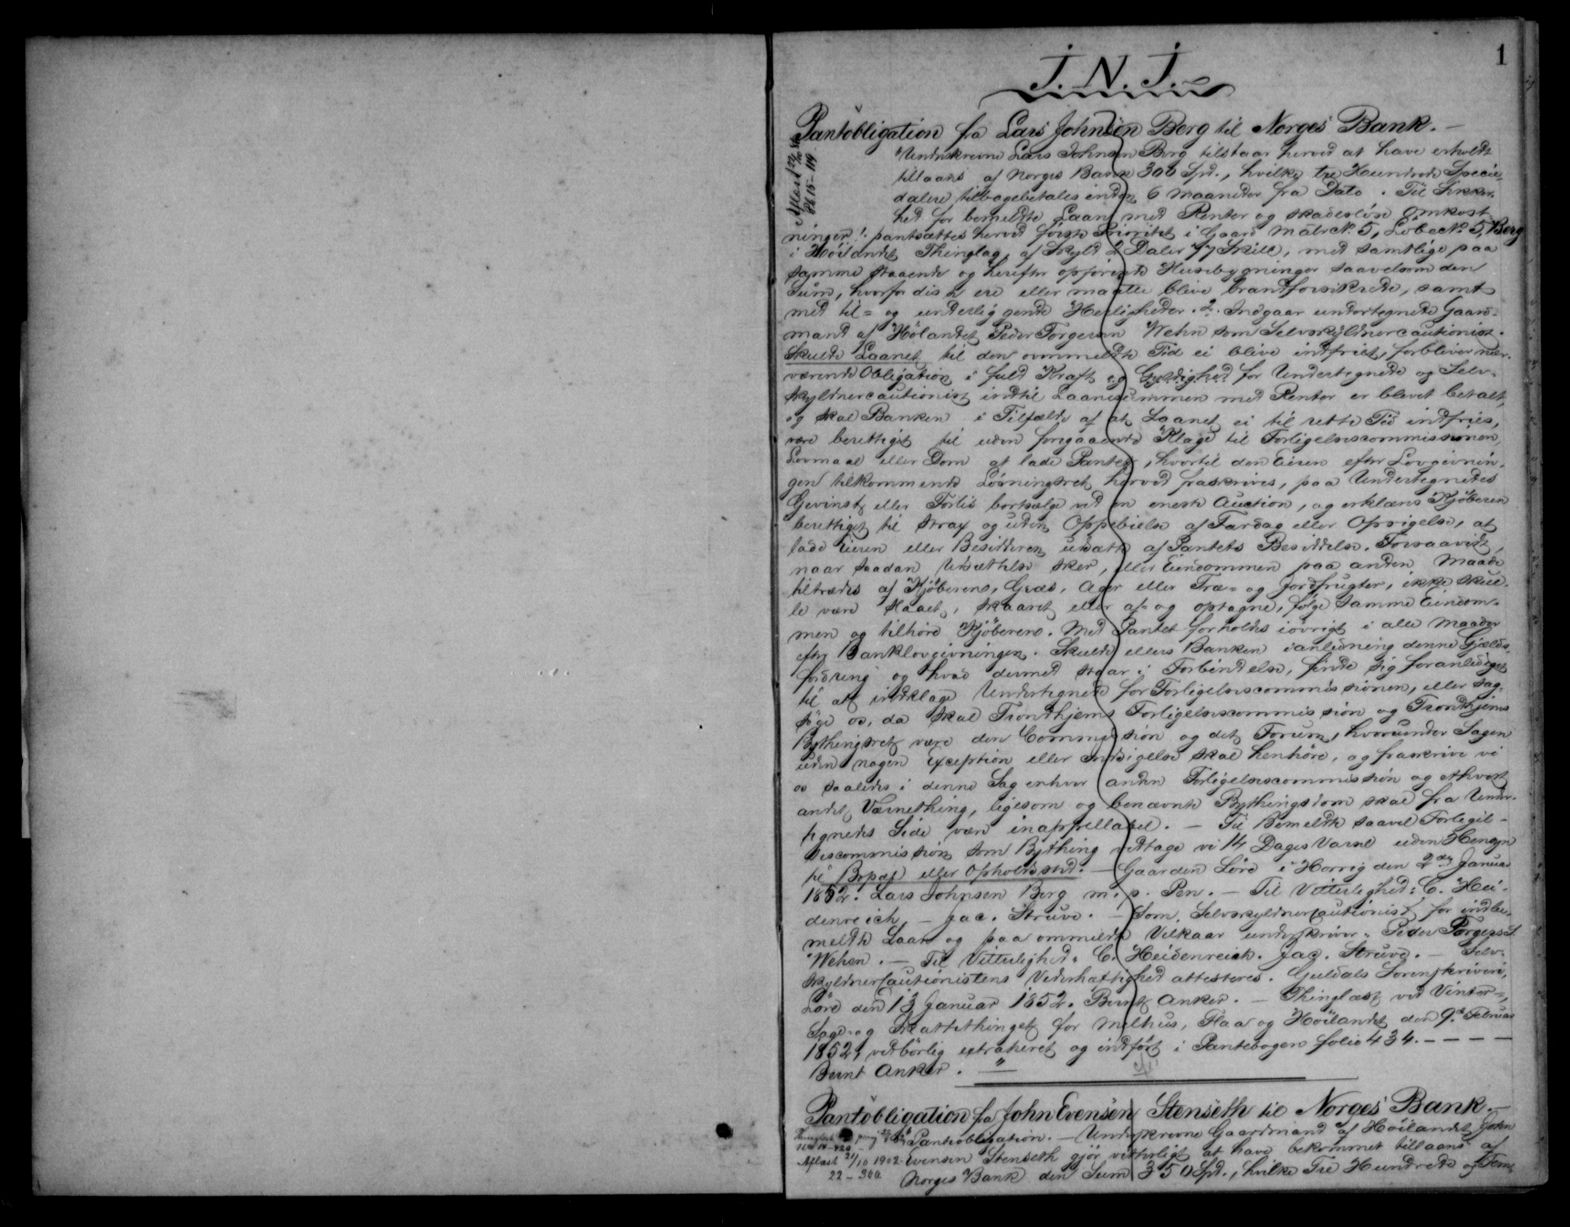 1
J. N. J.
Pantobligation fra Lars Johnsen Berg til Norges Bank. —
Undskrevne Lars Johnsen Berg tilstaar herved at have erholdt
tillaans af Norges Bank 300 Spd., hvilke tre Hundrede Specie-
dalere tilbagebetales inden 6 Maaneder fra Dato. Til Sikker-
hed for bemeldte Laan med Renter og skadesløse Omkost-
ninger 1. pantsættes herved første Prioritet i Gaard Matr. N. 5, Løbe N. 5, Berg
i Höilandet Thinglag, af Skyld 2 Daler 77 Skill, med samtlige paa
samme staaende og herefter opførende Huusbygninger saavelsom den
Sum, hvorfor disse ere eller maatte blive brandforsikrede, samt
med til- og underliggende Herligheder. 2. Indgaar undertegnede Gaard-
mand af Hölandet Peder Torgersen Wehn som Selvskyldnercautionist.
Skulde Laanet til den ovenmeldte Tid ei blive indfriet, forbliver nær-
værende Obligation i fuld Kraft og Gyldighed for Undertegnede og Selv-
skyldnercautionist indtil Laanesummen med Renter er blevet betalt,
og skal Banken i Tilfælde af at Laanet ei til rette Tid indfries,
være berettiget til uden foregaaende Klage til Forligelsescommissionen,
Lovmaal eller Dom at lade Pantet, hvortil den Eieren efter Lovgivnin-
gen tilkommende Løsningsret herved fraskrives, paa Undertegnedes
Gevinst eller Forlis bortsælge ved en eneste Auction, og erklæres Kjøberen
berettiget til strax og uden Oppebielse af Fardag eller Opsigelse, at
lade Eieren eller Besidderen udsætte af Pantets Besiddelse. Forsaavidt,
naar saadan Udsættelse sker, eller Eiendommen paa anden Maade
tiltrædes af Kjøberen, Græs, Ager eller Træ- og Jordfrugter, ikke skul-
le være slaaet, skaaret eller af- og optagne, følge samme Eiendom-
men og tilhøre Kjøberen. Med Pantet forholdes iøvrigt i alle Maader
efter Banklovgivningen. Skulde ellers Banken i anledning denne Gjelds-
fordring og hvad dermed staar i Forbindelse, finde sig foranlediget
til at indklage Undertegnede for Forligelsescommissionen, eller sag-
søge os, da skal Trondhjems Forligelsescommission og Trondhjems
Bythingsret være den Commission og det Forum, hvorunder Sagen
uden nogen Exception eller Indsigelse skal henhøre, og fraskrive vi
os saaledes i denne Sag enhver anden Forligelsescommission og ethvert
andet Værnething, ligesom og benævnte Bythingsdom skal fra Under-
tegnedes Side være inappellabel. — Til Bemeldte saavel Forligel-
sescommission som Bything vedtage vi 14 Dages Varsel uden Hensyn
til Bopæl eller Opholdssted. — Gaarden Løre i Horrig den 2den Januar
1852. Lars Johnsen Berg m. p. Pen. — Til Vitterlighed: C. Hei-
denreich. — Jac. Struve. — Som Selvskyldnercautionist for indbe-
meldte Laan og paa ommeldte Vilkaar underskriver. Peder Torgersen
Wehen. — Til Vitterlighed: C. Heidenreich. Jac. Struve. — Selv-
skyldnercautionistens Vederhæftighed attesteres. Guldals Sorenskriveri,
Löre den 13 Januar 1852. Bernt Anker. — Thinglæst ved Vinter-,
Sage- og Skattethinget for Melhus, Flaa og Höilandet den 9de Februar
1852, vedbörlig extraheret og indført i Pantebogen folio 434. — — —
Bernt Anker.
Pantobligation fra John Evensen Stenseth til Norges Bank. —
Pantobligation. — Underskrevne Gaardmand af Höilandet John
Aflæst 21/10 1902 Evensen Stenseth gjör vitterligt at have bekommet tillaans af
22 - 300 Norges Bank den Sum 350 Spd., hvilke Tre Hundrede og Fem-